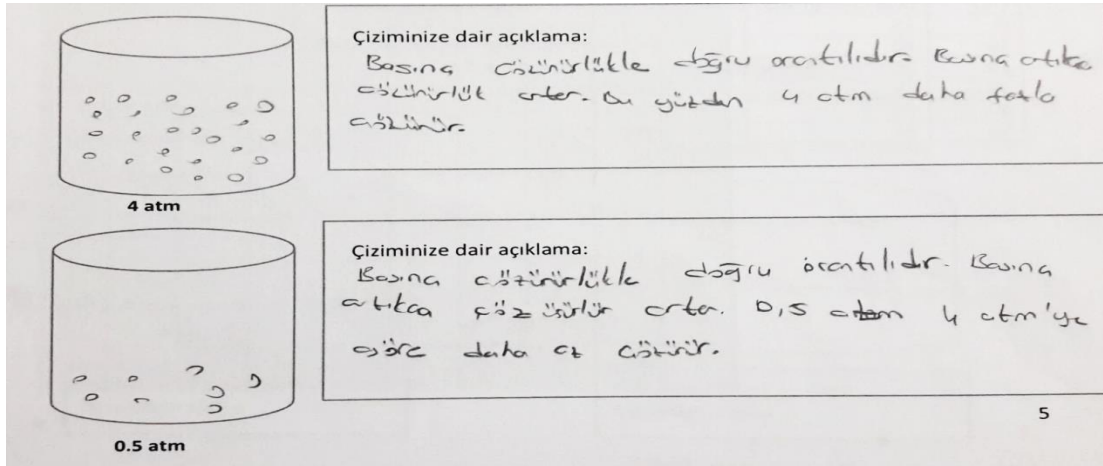 Çiziminize dair açıklama:
Basınç çözünürlükle doğru orantılıdır. Basınç artıkça
çözünürlük artar. Bu yüzden 4 atm daha fazla
çözünür.
4 atm
Çiziminize dair açıklama:
Basınç çözünürlükle doğru orantılıdır. Basınç
artıkça çözüsürlür artar. 0,5 atm 4 atm'ye
göre daha az çözünür.
5
0.5 atm